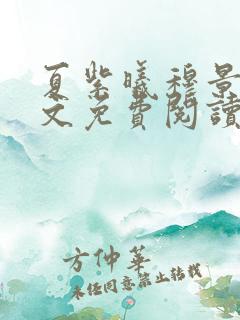 夏紫曦穆景
文免費閱讀
方仲華
未经同意禁止转载